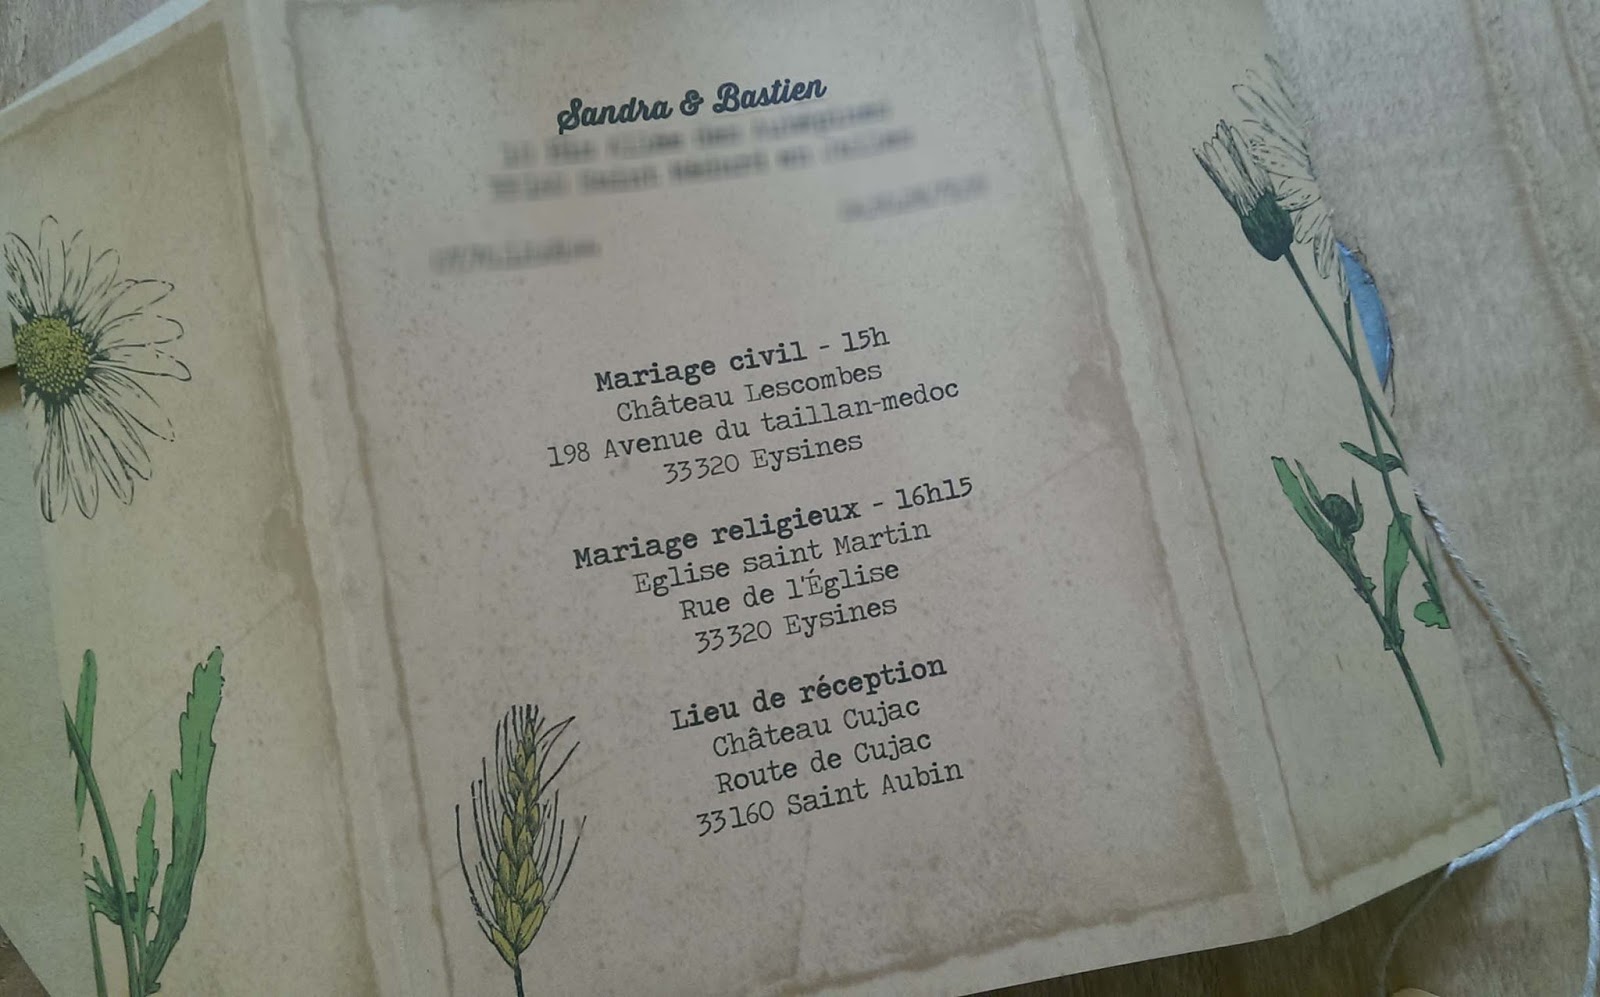 Sandra & Bastien
Mariage civil - 15h
Château Lescombes
198 Avenue du taillan-medoc
33320 Eysines
Mariage religieux - 16h15
Eglise saint Martin
Rue de l'Église
33320 Eysines
Lieu de réception
Château Cujac
Route de Cujac
33160 Saint Aubin